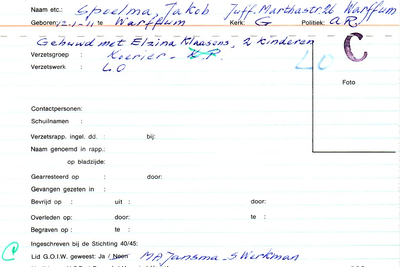 Naam etc.: Spoelma, Jakob Juff. Marthastr. 26 Warffum
Geboren: 12-1-11 te Warffum Kerk: G Politiek: A.R.
Gehuwd met Elzina Klaasens, 2 kinderen
C
Verzetsgroep : Koerier - K.P.
LO
Verzetswerk : L.O
Foto
Contactpersonen:
Schuilnamen :
Verzetsrapp. ingel. dd. : bij:
Naam genoemd in rapp.:
op bladzijde:
Gearresteerd op : door:
Gevangen gezeten in :
Bevrijd op : uit : door:
Overleden op: door: te :
Begraven op : te :
Ingeschreven bij de Stichting 40/45:
C Lid G.O.I.W. geweest: Ja / Neen M.A. Jansma - S Werkman